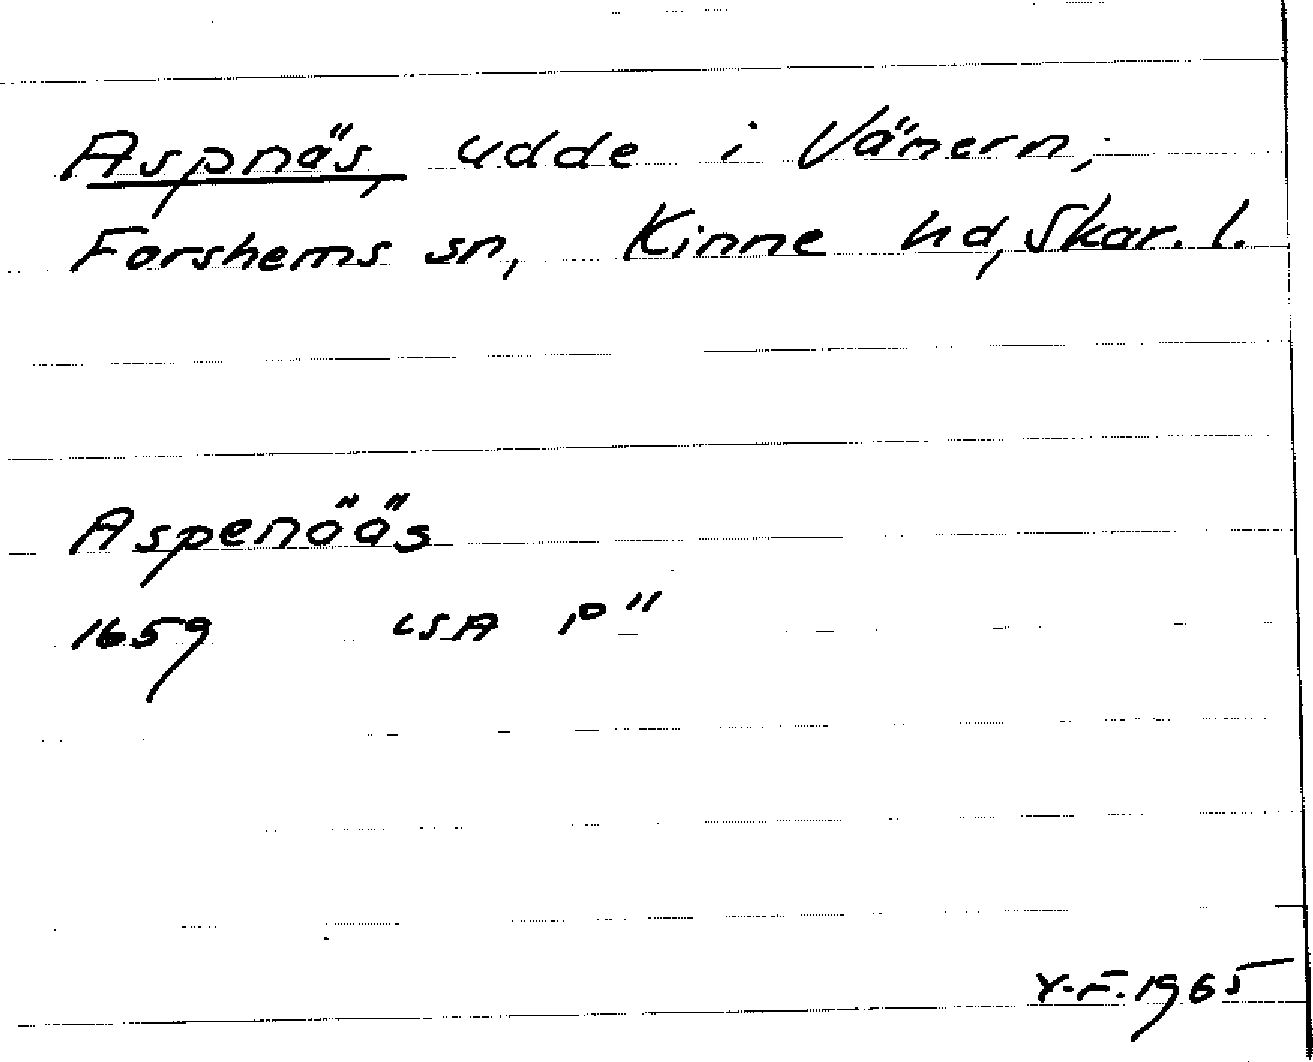 Aspnäs, udde i Vänern,
Forshems sn, Kinne hd, Skar. l.
Aspenääs
1659 LSA P"
Y.F. 1965